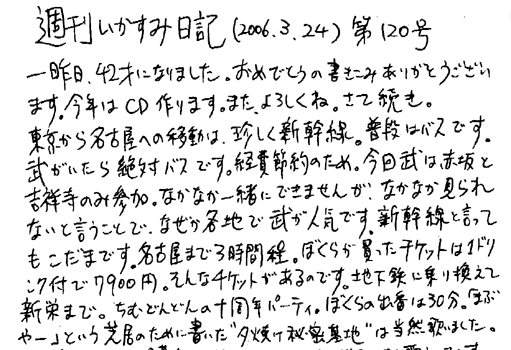 週刊いかすみ日記(2006.3.24)第120号
一昨日、42才になりました。おめでとうの書きこみありがとうござい
ます。今年はCD作ります。また、よろしくね。さて続き。
東京から名古屋への移動は、珍しく新幹線。普段はバスです。
武がいたら絶対バスです。経費節約のため。今回武は赤坂と
吉祥寺のみ参加。なかなか一緒にできませんが、なかなか見られ
ないと言うことで、なぜか各地で武が人気です。新幹線と言って
もこだまです。名古屋まで3時間程。ぼくらが買ったチケットは1ドリ
ンク付で7900円。そんなチケットがあるのです。地下鉄に乗り換えて
新栄まで。ちむどんどんの十周年パーティ。ぼくらの出番は30分。「まぶ
やー」という芝居のために書いた"夕焼け秘密基地"は当然歌いました。